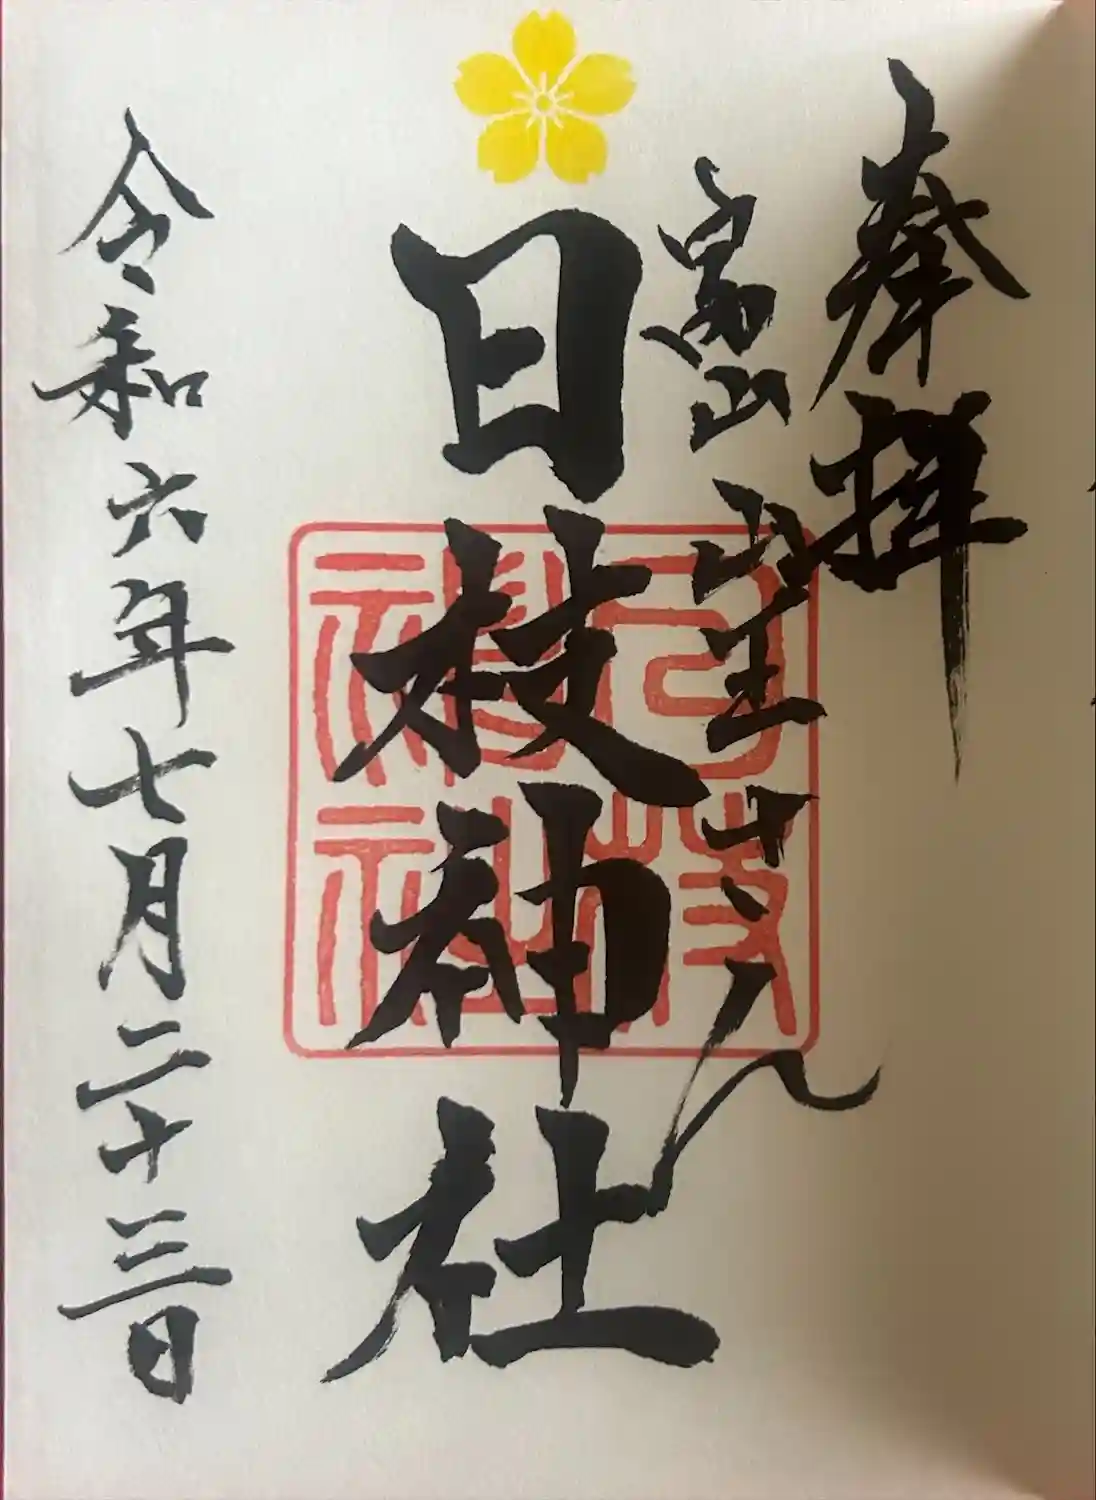 奉拝
富山 山王さん
日枝神社
日枝
神社
令和六年七月二十三日